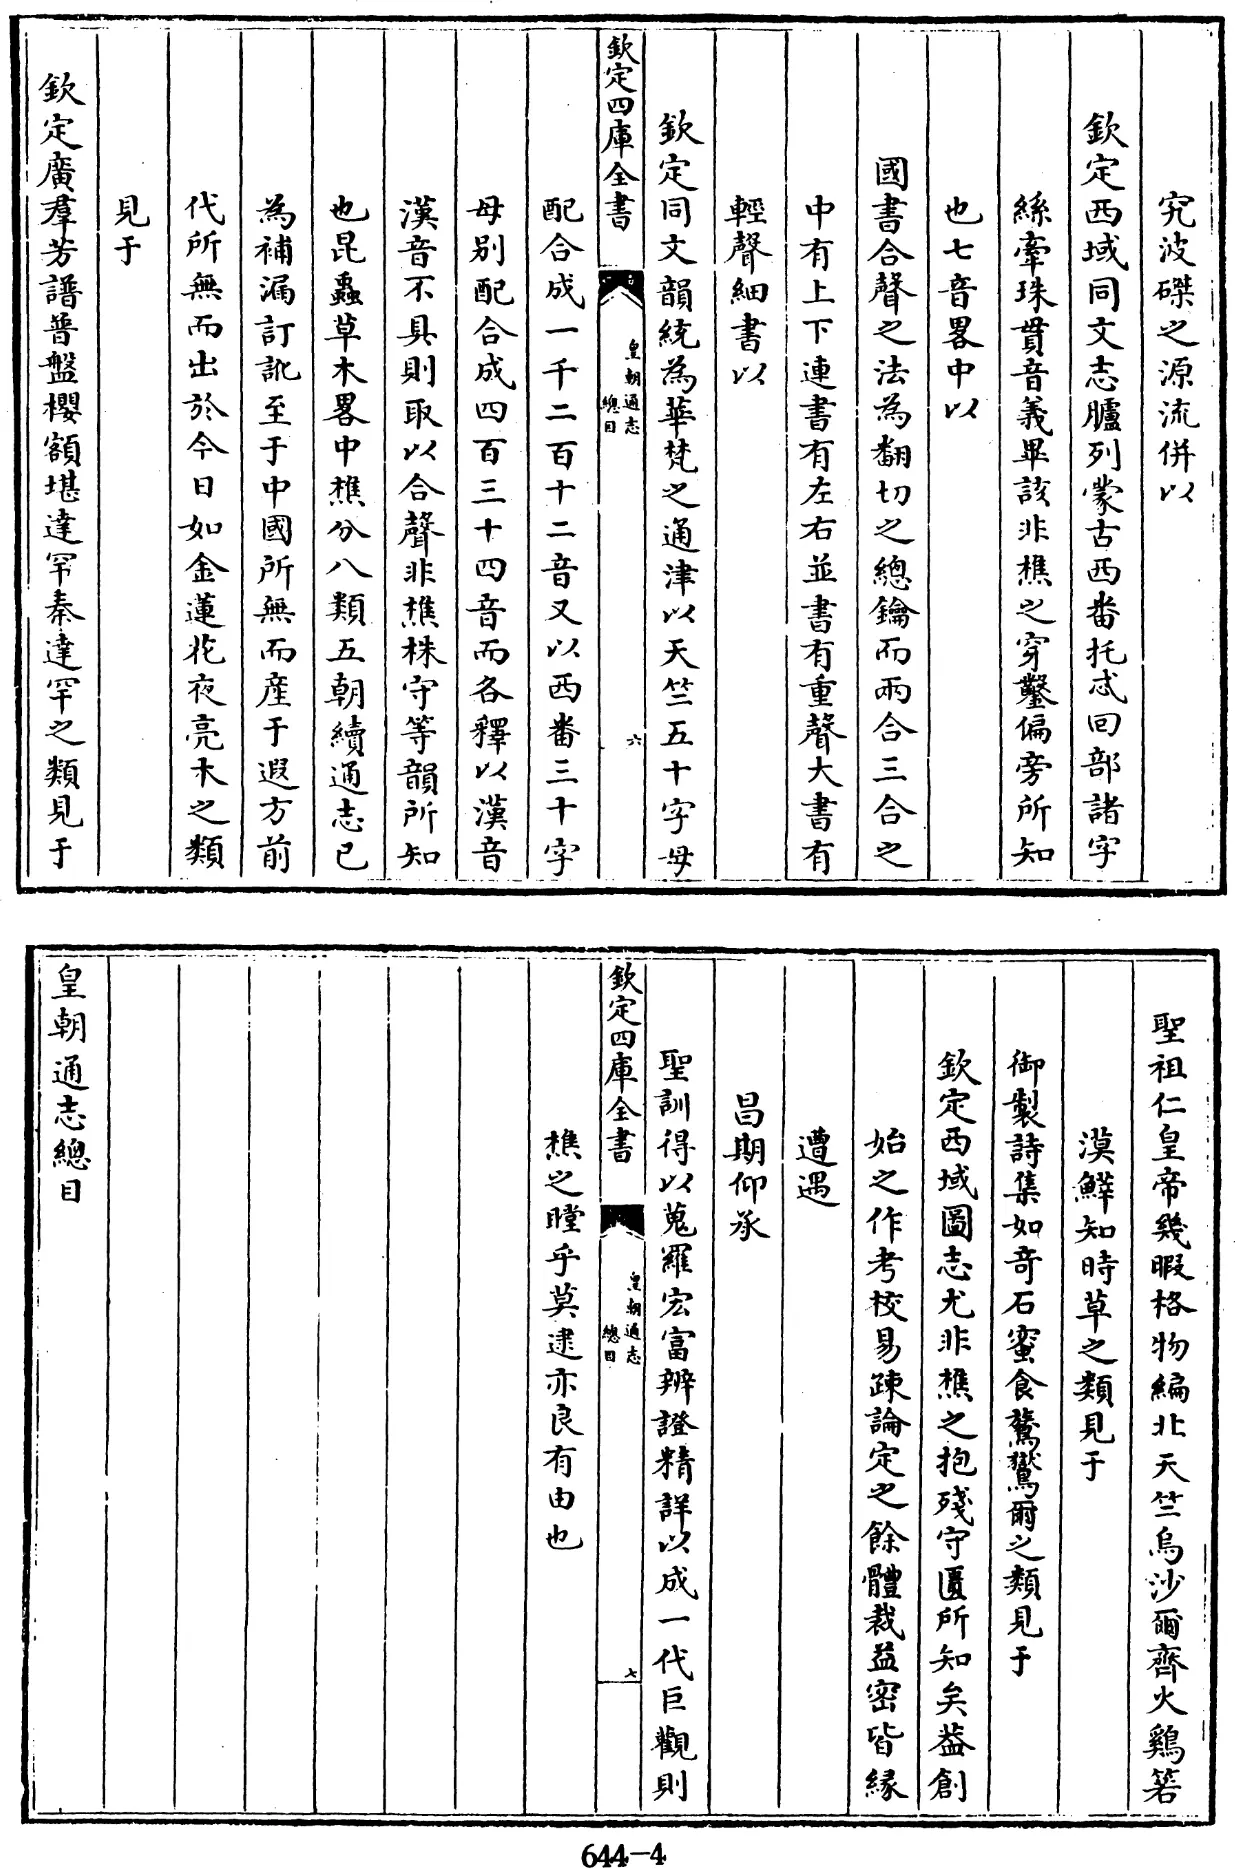 究波磔之源流併以
欽定西域同文志臚列蒙古西番托忒回部諸字
絲牽珠貫音義畢該非樵之穿鑿偏旁所知
也七音畧中以
國書合聲之法為翻切之總鑰而兩合三合之
中有上下連書有左右並書有重聲大書有
輕聲細書以
欽定同文韻統為華梵之通津以天竺五十字母
欽定四庫全書
皇朝通志
總目
六
配合成一千二百十二音又以西番三十字
母别配合成四百三十四音而各釋以漢音
漢音不具則取以合聲非樵株守等韻所知
也昆蟲草木畧中樵分八類五朝續通志已
為補漏訂訛至于中國所無而産于遐方前
代所無而出於今日如金蓮花夜亮木之類
見于
欽定廣羣芳譜普盤櫻額堪達罕秦達罕之類見于
聖祖仁皇帝幾暇格物編北天竺烏沙爾齊火鷄箬
漠鮮知時草之類見于
御製詩集如奇石蜜食鷙鸑爾之類見于
欽定西域圖志尤非樵之抱殘守匱所知矣葢創
始之作考校易疎論定之餘體裁益密皆縁
遭遇
昌期仰承
聖訓得以蒐羅宏富辨證精詳以成一代巨觀則
欽定四庫全書
皇朝通志
總目
七
樵之瞠乎莫逮亦良有由也
皇朝通志總目
644-4